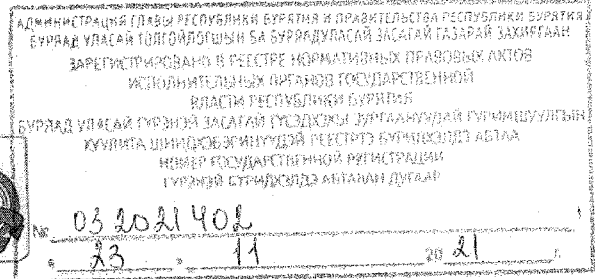 АДМИНИСТРАЦИЯ ГЛАВЫ РЕСПУБЛИКИ БУРЯТИЯ И ПРАВИТЕЛЬСТВА РЕСПУБЛИКИ БУРЯТИЯ
БУРЯАД УЛАСАЙ ТОЛГОЙЛОГШЫН БА БУРЯАД УЛАСАЙ ЗАСАГАЙ ГАЗАРАЙ ЗАХИРГААН
ЗАРЕГИСТРИРОВАНО В РЕЕСТРЕ НОРМАТИВНЫХ ПРАВОВЫХ АКТОВ
ИСПОЛНИТЕЛЬНЫХ ОРГАНОВ ГОСУДАРСТВЕННОЙ
ВЛАСТИ РЕСПУБЛИКИ БУРЯТИЯ
БУРЯАД УЛАСАЙ ГҮРЭНЭЙ ЗАСАГАЙ ГҮЙСЭДХЭХЫ ЗУРГААНУУДАЙ ГУРИМШУУЛГЫН
РЕЕСТРТЭ БҮРИДХЭЛДЭ АБТАА
НОМЕР ГОСУДАРСТВЕННОЙ РЕГИСТРАЦИИ
ГҮРЭНЭЙ БҮРИДХЭЛДЭ АБТАҺАН ДУГААР
№ 032021402
" 23 " 11 20 21 г.